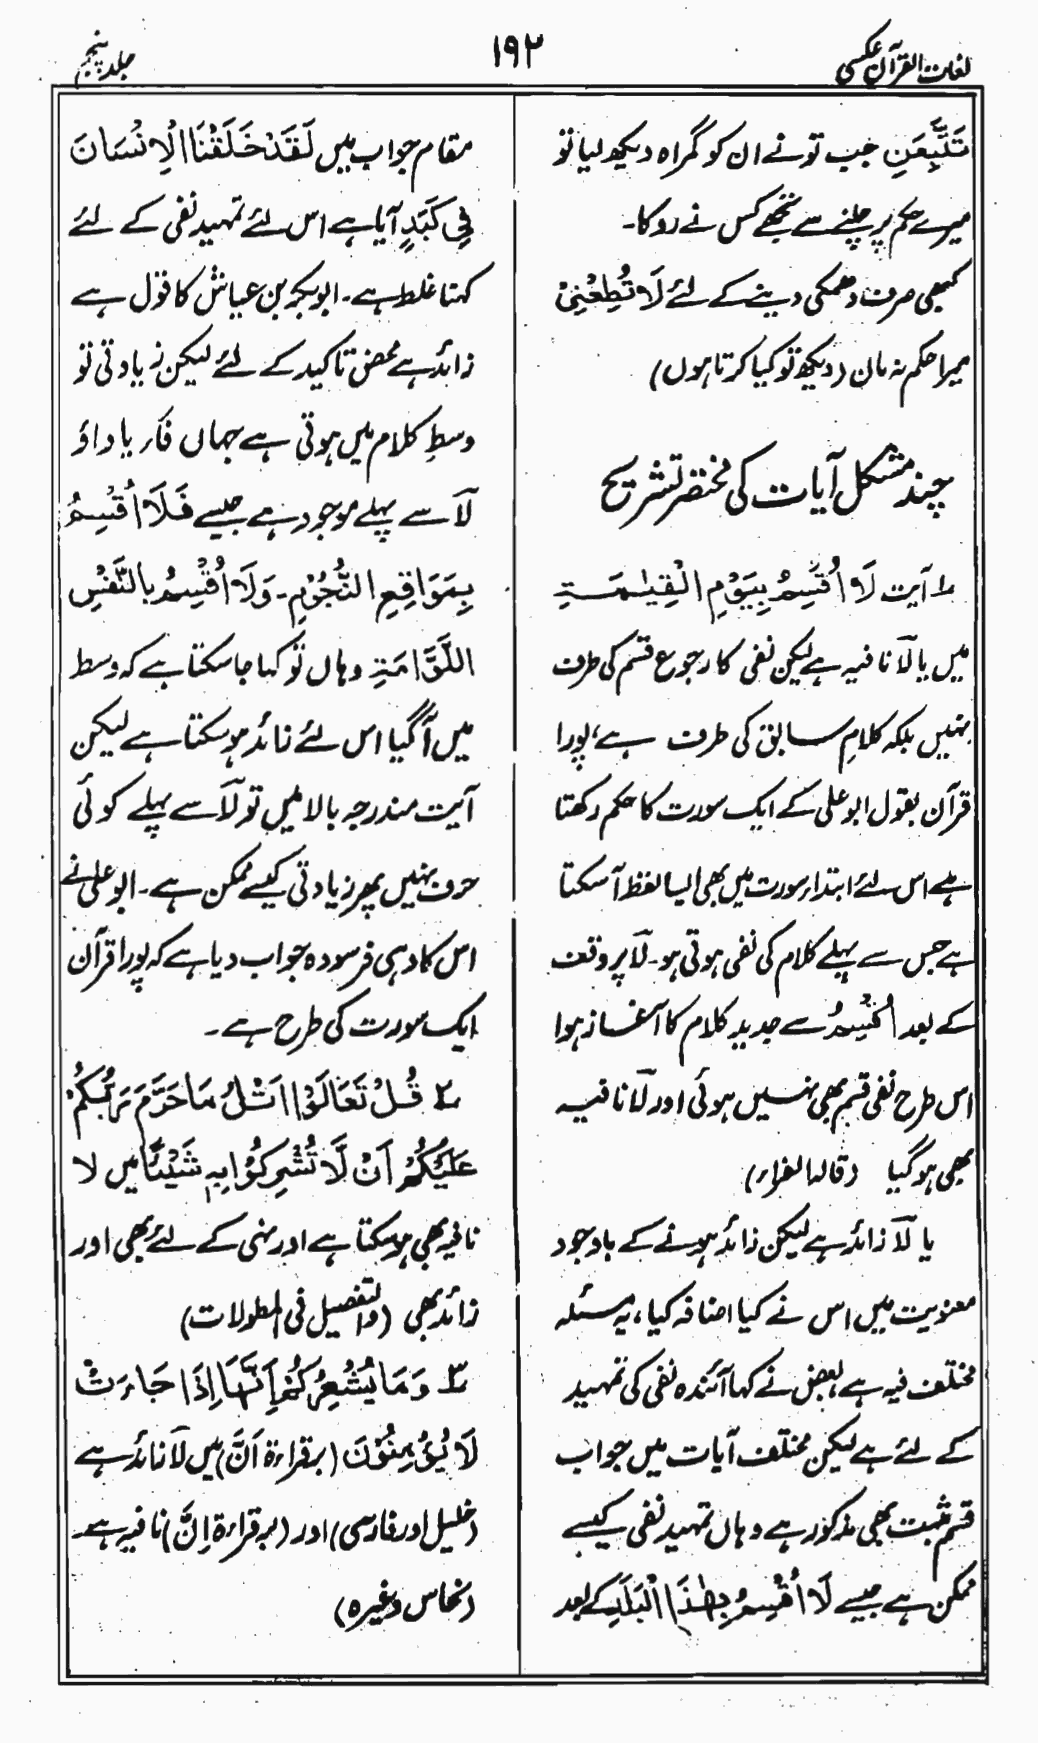 لغات القرآن عکسی
۱۹۲
جلد پنجم
تَتَّبِعَنِ جب تو نے ان کو گمراہ دیکھ لیا تو
میرے حکم پر چلنے سے تجھے کس نے روکا۔
کبھی صرف دھمکی دینے کے لئے لَا تُطِعْنِیْ
میرا حکم نہ مان (دیکھ تو کیا کرتا ہوں)
چند مشکل آیات کی مختصر تشریح
۱ آیت لَا اُقْسِمُ بِیَوْمِ الْقِیٰمَةِ
میں یا لَا نافیہ ہے لیکن نفی کا رجوع قسم کی طرف
نہیں بلکہ کلامِ سابق کی طرف ہے، پورا
قرآن بقول ابو علی کے ایک سورت کا حکم رکھتا
ہے اس لئے ابتداء سورت میں بھی ایسا لفظ آ سکتا
ہے جس سے پہلے کلام کی نفی ہوتی ہو۔ لَا پر وقف
کے بعد اُقْسِمُ سے جدید کلام کا آغاز ہوا
اس طرح نفی قسم بھی نہیں ہوئی اور لَا نافیہ
بھی ہو گیا (قالہا الفراء)
یا لَا زائد ہے لیکن زائد ہونے کے باوجود
معنویت میں اس نے کیا اضافہ کیا، یہ مسئلہ
مختلف فیہ ہے بعض نے کہا آئندہ نفی کی تمہید
کے لئے ہے لیکن مختلف آیات میں جواب
قسم مثبت بھی مذکور ہے وہاں تمہید نفی کیسے
ممکن ہے جیسے لَا اُقْسِمُ بِهٰذَا الْبَلَدِ کے بعد
مقام جواب میں لَقَدْ خَلَقْنَا الْاِنْسَانَ
فِیْ کَبَدٍ آیا ہے اس لئے تمہید نفی کے لئے
کہنا غلط ہے۔ ابوبکر بن عیاش کا قول ہے
زائد ہے محض تاکید کے لئے لیکن زیادتی تو
وسطِ کلام میں ہوتی ہے جہاں فاء یا واؤ
لَا سے پہلے موجود ہے جیسے فَلَا اُقْسِمُ
بِمَوَاقِعِ النُّجُوْمِ۔ وَلَا اُقْسِمُ بِالنَّفْسِ
اللَّوَّامَةِ وہاں تو کہا جا سکتا ہے کہ وسط
میں آ گیا اس لئے زائد ہو سکتا ہے لیکن
آیت مندرجہ بالا میں تو لَا سے پہلے کوئی
حرف نہیں پھر زیادتی کیسے ممکن ہے۔ ابو علی نے
اس کا وہی فرسودہ جواب دیا ہے کہ پورا قرآن
ایک سورت کی طرح ہے۔
۲ قُلْ تَعَالَوْا اَتْلُ مَا حَرَّمَ رَبُّکُمْ
عَلَیْکُمْ اَنْ لَّا تُشْرِکُوْا بِهٖ شَیْئًا میں لا
نافیہ بھی ہو سکتا ہے اور نہی کے لئے بھی اور
زائد بھی (والتفصیل فی المطولات)
۳ وَمَا یُشْعِرُکُمْ اَنَّهَا اِذَا جَاءَتْ
لَا یُؤْمِنُوْنَ (برقراءۃ اَنَّ) میں لَا زائد ہے
(خلیل اور فارسی) اور (برقراءۃ اِنَّ) نافیہ ہے۔
(نحاس وغیرہ)